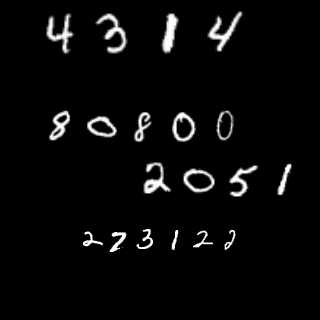 4314
80800
2051
273122